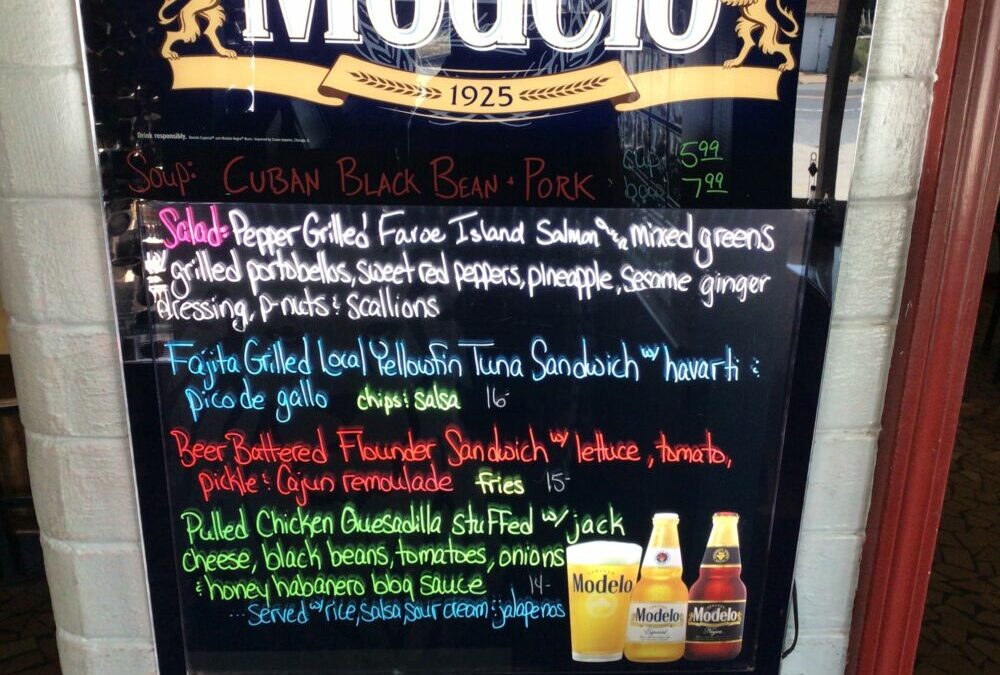 Modelo
1925
Drink responsibly.
Soup: CUBAN BLACK BEAN + PORK cup 5.99
bowl 7.99
Salad: Pepper Grilled Faroe Island Salmon over mixed greens
w/ grilled portobellos, sweet red peppers, pineapple, sesame ginger
dressing, p-nuts & scallions
Fajita Grilled Local Yellowfin Tuna Sandwich w/ havarti &
pico de gallo chips & salsa 16-
Beer Battered Flounder Sandwich w/ lettuce, tomato,
pickle & Cajun remoulade fries 15-
Pulled Chicken Quesadilla stuffed w/ jack
cheese, black beans, tomatoes, onions
& honey habanero bbq sauce 14-
...served w/ rice, salsa, sour cream & jalapeños
Modelo
Modelo
Especial
Modelo
Negra